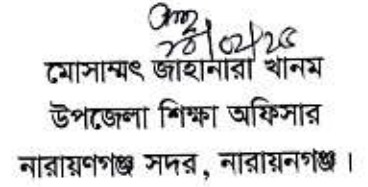 মোসাম্মৎ জাহানারা খানম
উপজেলা শিক্ষা অফিসার
নারায়ণগঞ্জ সদর, নারায়নগঞ্জ।